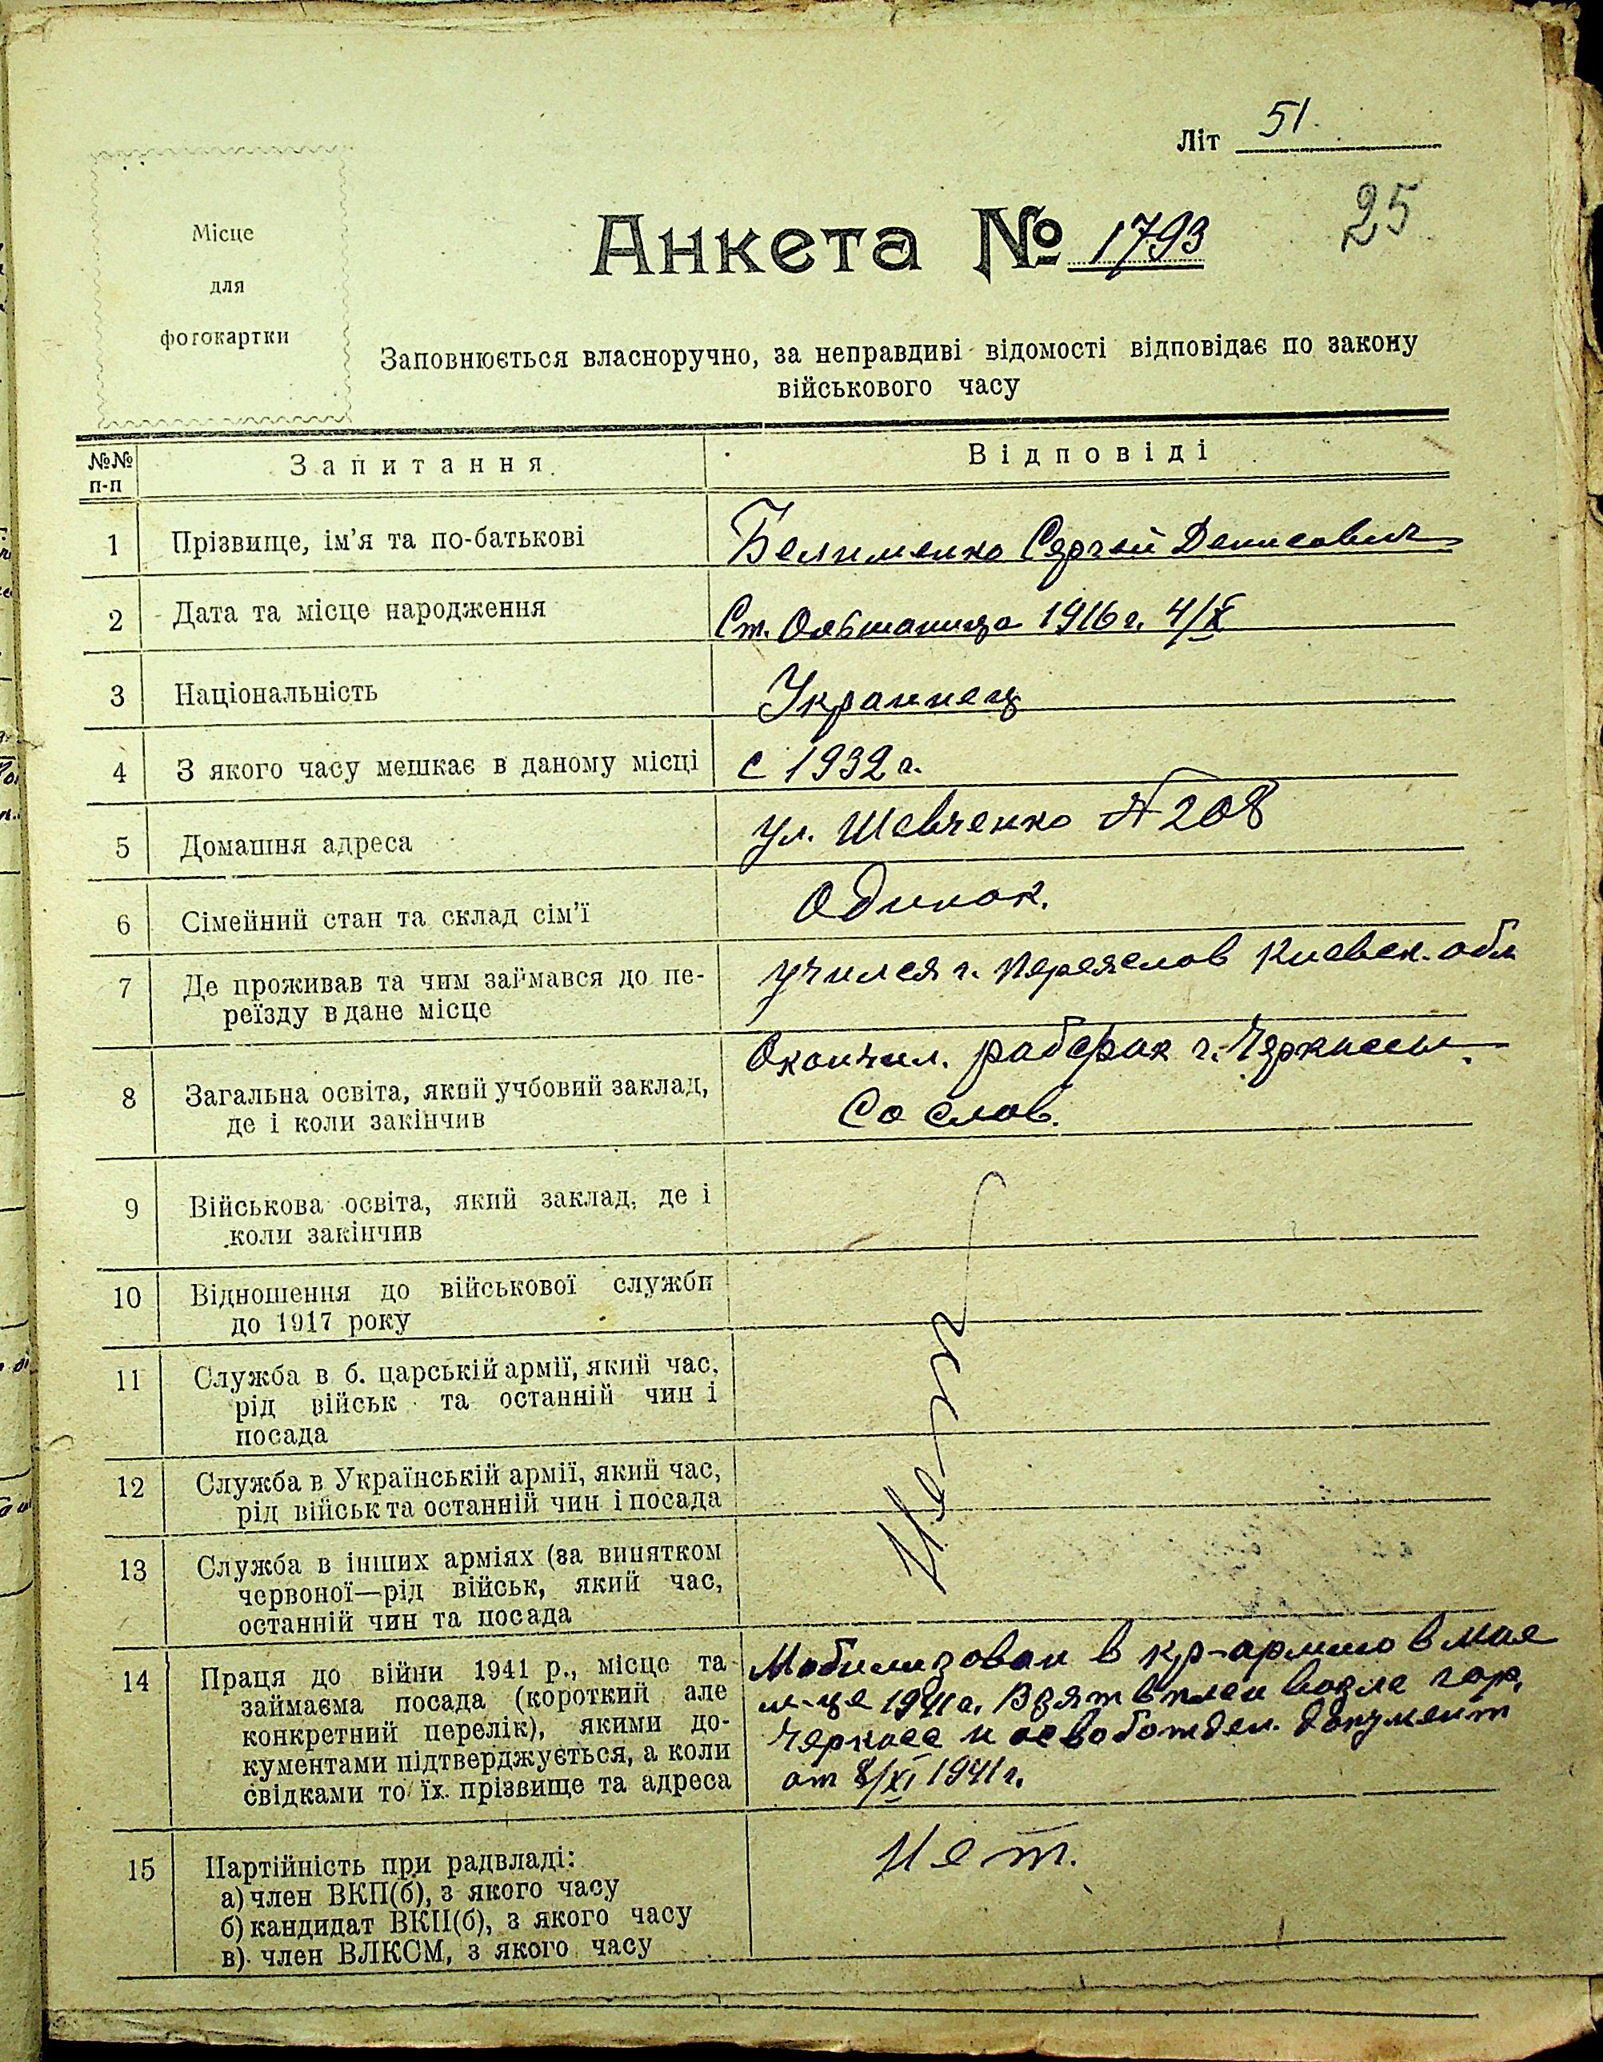 Літ 51
25
Анкета № 1793
Місце
для
фотокартки
Заповнюється власноручно, за неправдиві відомості відповідає по закону
військового часу
№№ п-п Запитання Відповіді
1 Прізвище, ім'я та по-батькові Белименко Сергей Денисович
2 Дата та місце народження Ст. Ольшаница 1916 г. 4/X
3 Національність Украинец
4 З якого часу мешкає в даному місці с 1932 г.
5 Домашня адреса ул. Шевченко № 208
6 Сімейний стан та склад сім'ї Одинок.
7 Де проживав та чим займався до пе-
реїзду в дане місце учился г. Переяслов Киевск. обл
8 Загальна освіта, який учбовий заклад,
де і коли закінчив Окончил. рабфак г. Черкассы.
Со слов.
9 Військова освіта, який заклад, де і
коли закінчив
10 Відношення до військової служби
до 1917 року
11 Служба в б. царській армії, який час,
рід військ та останній чин і
посада
12 Служба в Українській армії, який час,
рід військ та останній чин і посада
13 Служба в інших арміях (за винятком
червоної—рід військ, який час,
останній чин та посада
Нет
14 Праця до війни 1941 р., місце та
займаєма посада (короткий але
конкретний перелік), якими до-
кументами підтверджується, а коли
свідками то їх прізвище та адреса
Мобилизован в кр-армию в мае
м-це 1941 г. Взят в плен возле гор.
Черкасс и освобожден. документ
от 8/XI 1941 г.
15 Партійність при радвладі: Нет.
а) член ВКП(б), з якого часу
б) кандидат ВКП(б), з якого часу
в) член ВЛКСМ, з якого часу